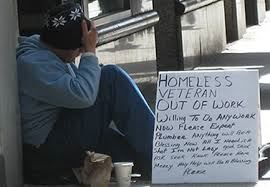 HOMELESS
VETERAN
OUT OF WORK
Willing To Do Any Work
Now Please Expert
Plumber Anything will Be A
Blessing Now All I need is A
Shot I'm Not Lazy
Risk Seek Please Have
Mercy Any Help will Be A Blessing
Please